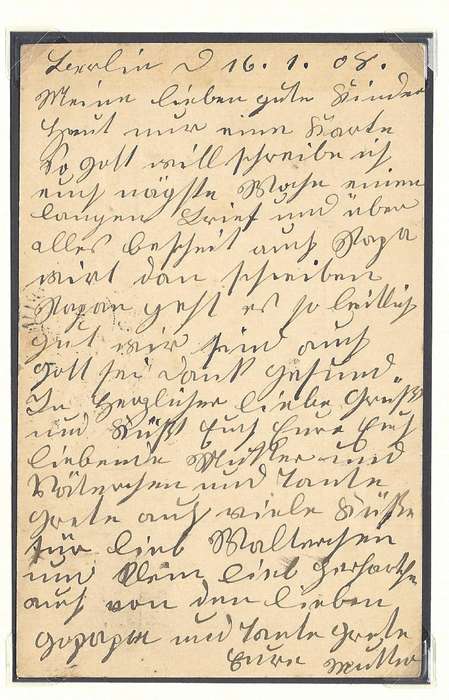 Berlin d 16. 1. 08.
Meine lieben gute Kinder
Heut nur eine Karte
So Gott will schreibe ich
euch nägste Woche einen
langen Brief und über
alles bescheit auch Papa
wirt dan schreiben
Papan geht es so leitlich
gut wir sind auch
Gott sei dank gesund
In herzlicher liebe Grüßt
und Küßt Euch Eure Euch
liebende Mutter und
Väterchen und Tante
Grete auch viele Küße
für lieb Walterchen
und klein lieb
auch von den lieben
Gopapa und Tante Grete
Eure Mutter